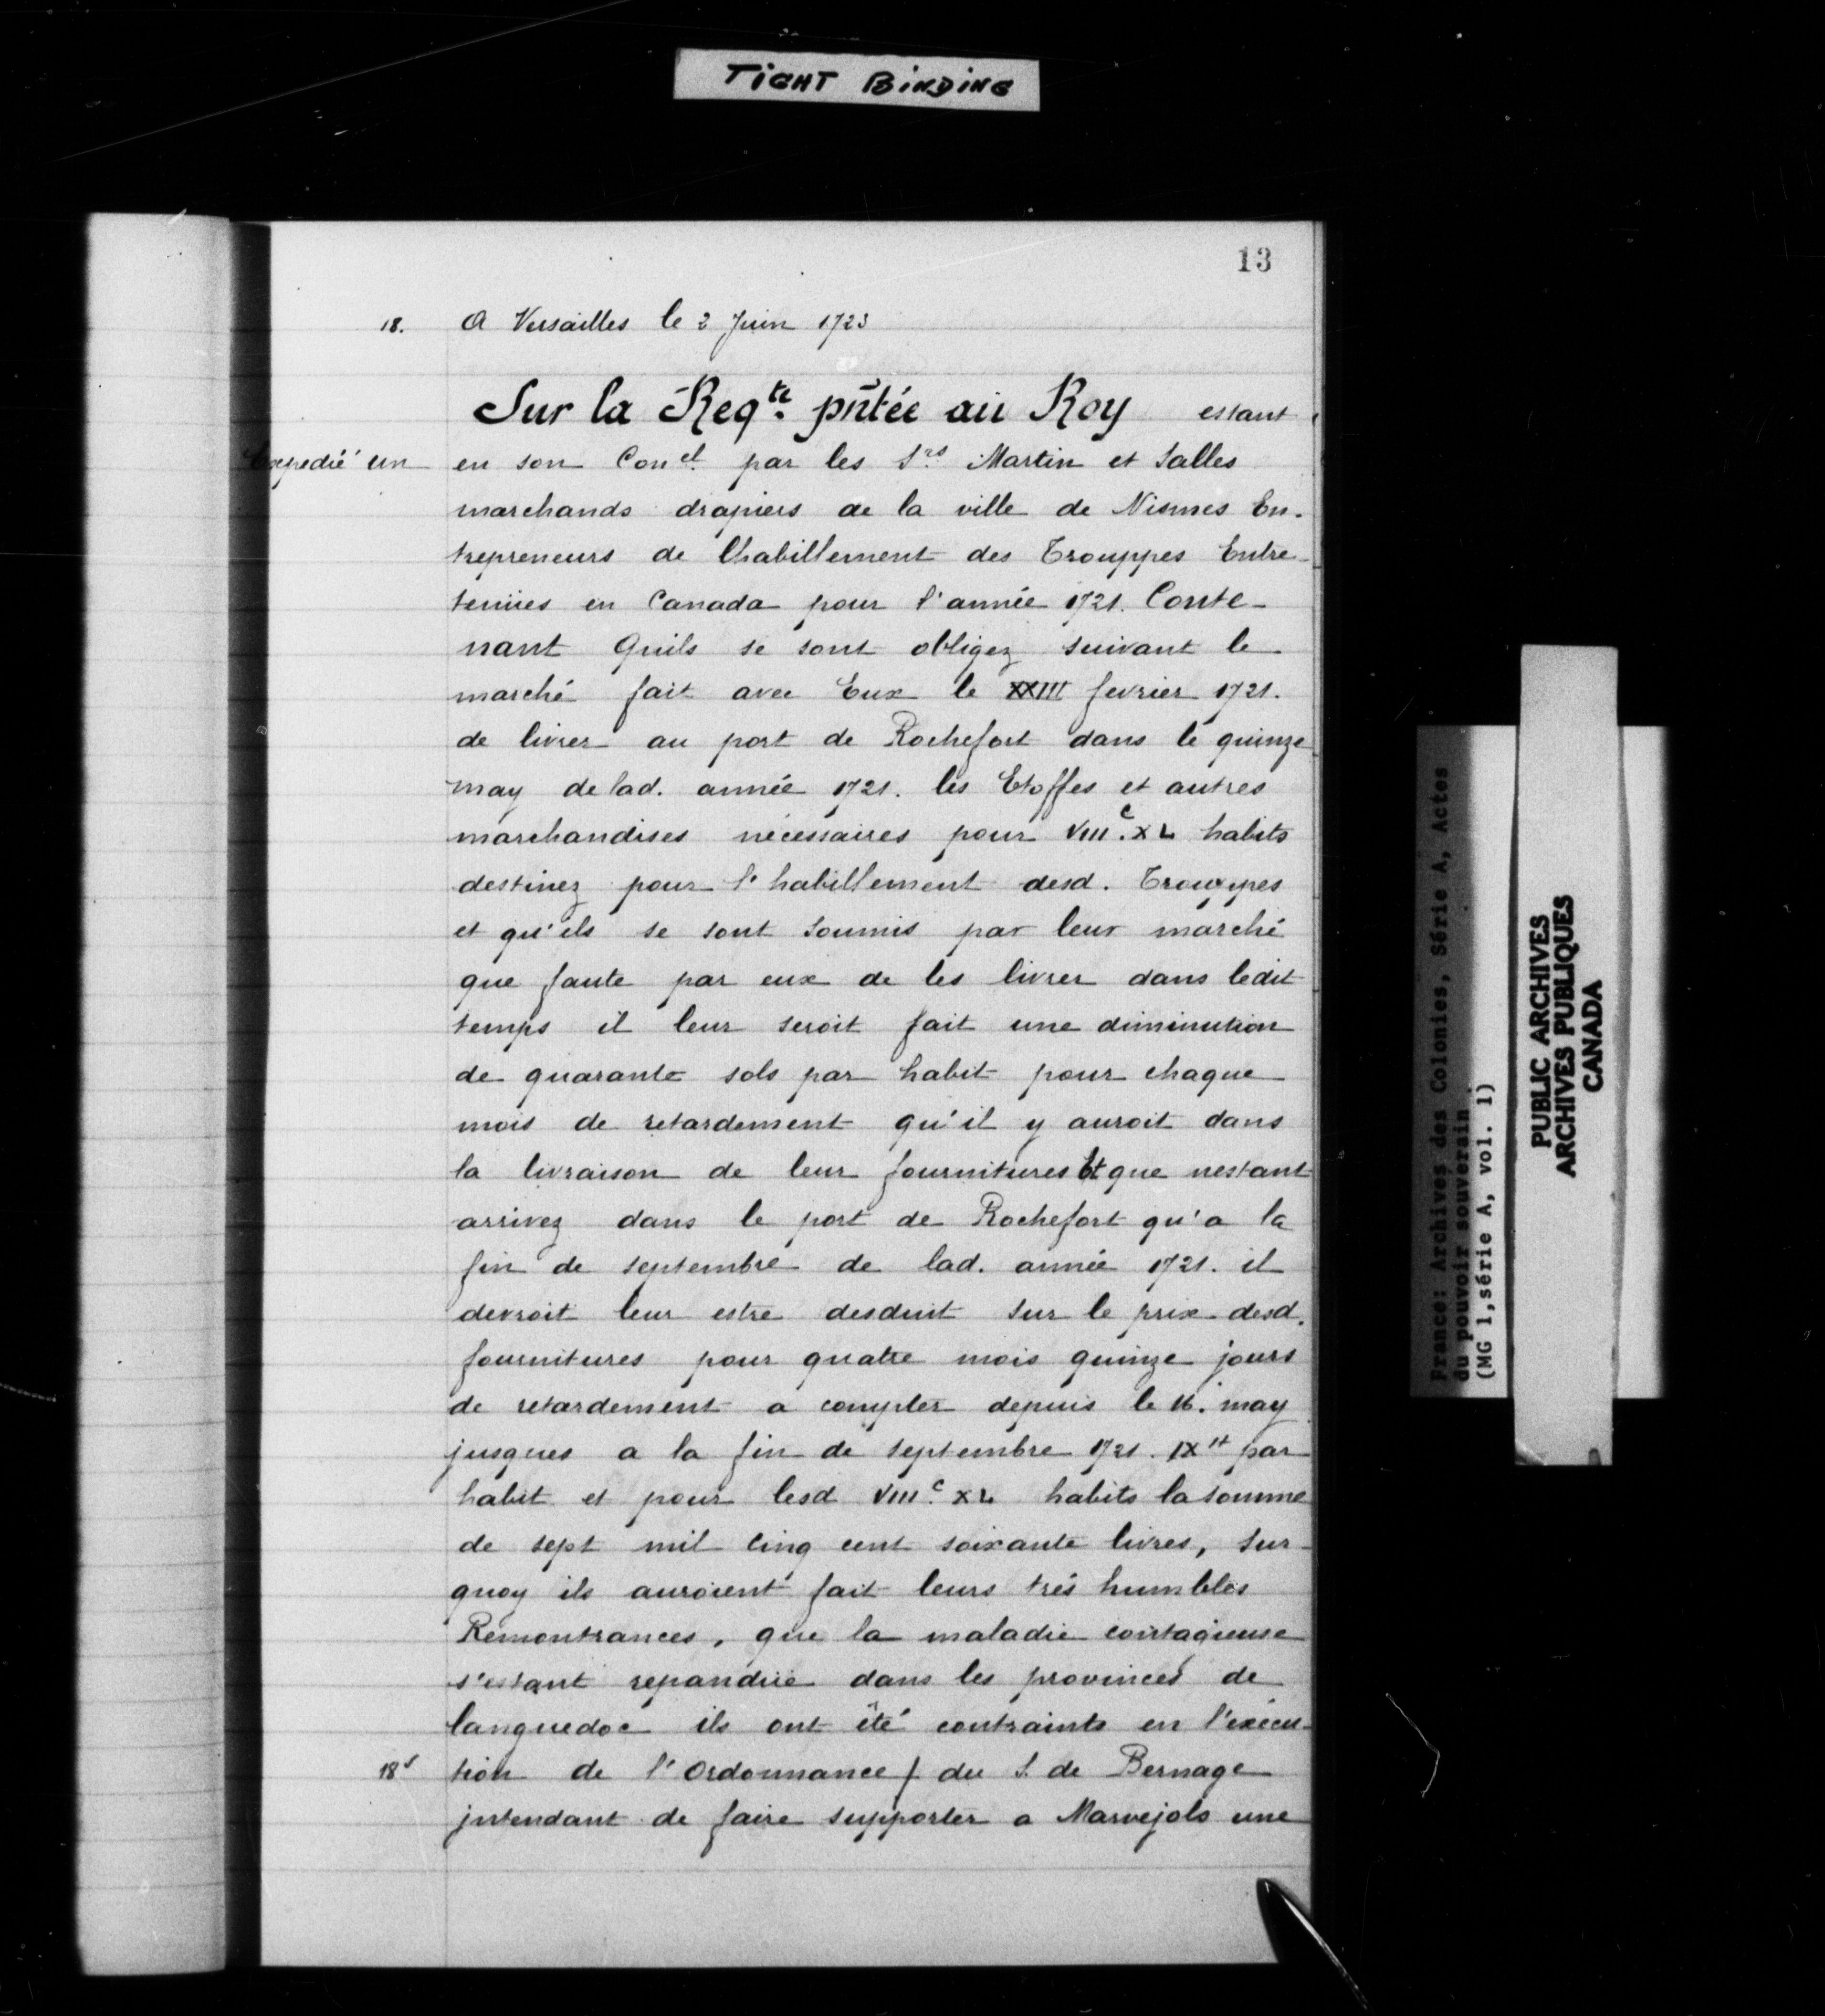 TIGHT BINDING
13
18. A Versailles le 2 Juin 1723
Sur la Reqte. pñtée au Roy estant
Expedié un en son Conel. par les Srs Martin et Salles
marchands drapiers de la ville de Nismes En-
trepreneurs de Lhabillement des Trouppes Entre-
tenües en Canada pour l'année 1721. Conte-
nant Quils se sont obligez suivant le
marché fait avec Eux le XXIII fevrier 1721.
de livrer au port de Rochefort dans le quinze
may de lad. année 1721. les Etoffes et autres
marchandises nécessaires pour VIIIc. XL habits
destinez pour l'habillement desd. Trouppes
et qu'ils se sont soumis par leur marché
que faute par eux de les livrer dans ledit
temps il leur seroit fait une diminution
de quarante sols par habit pour chaque
mois de retardement qu'il y auroit dans
la livraison de leur fournitures Et que nestant
arrivez dans le port de Rochefort qu'a la
fin de septembre de lad. année 1721. il
devroit leur estre desduit sur le prix desd.
fournitures pour quatre mois quinze jours
de retardement a compter depuis le 16. may
jusques a la fin de septembre 1721. IX tt par
habit et pour lesd VIIIc. XL habits la somme
de sept mil cinq cent soixante livres, sur
quoy ils auroient fait leurs trés humbles
Remontrances, que la maladie contagieuse
s'estant repandüe dans les provinces de
languedoc ils ont été contraints en l'exécu-
18v tion de l'Ordonnance / du S. de Bernage
jntendant de faire supporter a Marvejols une
France: Archives des Colonies, Série A, Actes
du pouvoir souverain
(MG 1,série A, vol. 1)
PUBLIC ARCHIVES
ARCHIVES PUBLIQUES
CANADA